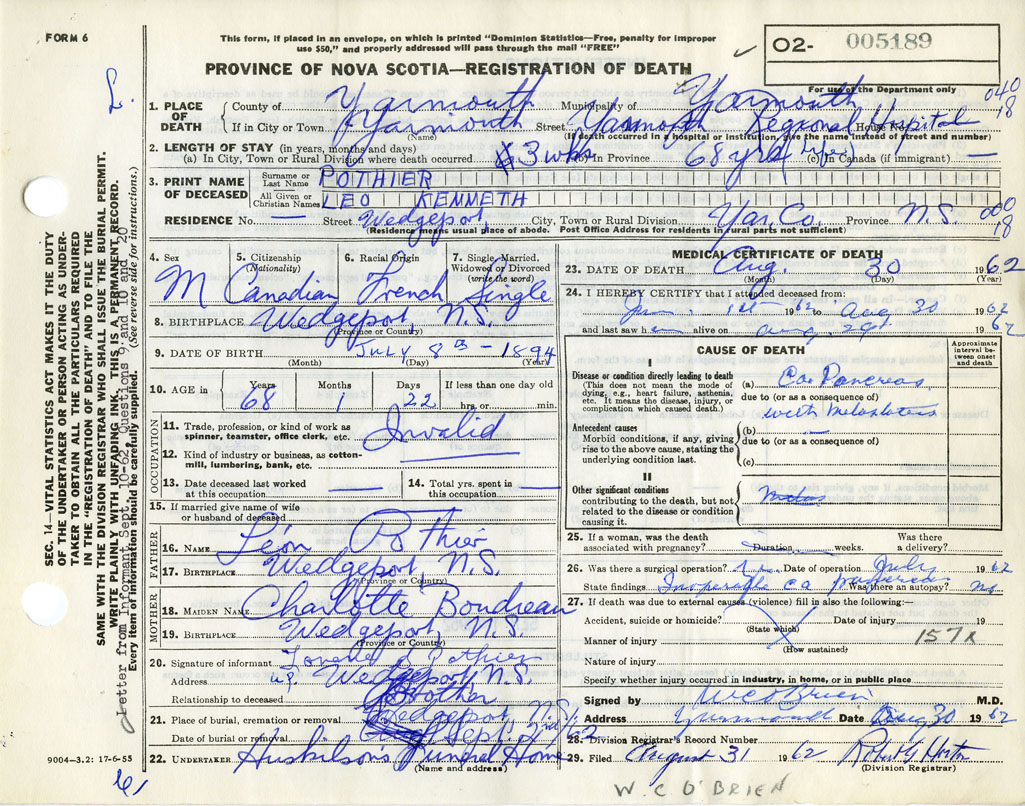 FORM 6
This form, if placed in an envelope, on which is printed "Dominion Statistics—Free, penalty for improper
use $50," and properly addressed will pass through the mail "FREE"
O2- 005189
For use of the Department only
PROVINCE OF NOVA SCOTIA—REGISTRATION OF DEATH
L.
040
18
1. PLACE OF DEATH
County of Yarmouth Municipality of Yarmouth
If in City or Town Yarmouth Street Yarmouth Regional Hospital House No.
(Name) (If death occurred in a hospital or institution, give the name instead of street and number)
2. LENGTH OF STAY (in years, months and days)
(a) In City, Town or Rural Division where death occurred 3 wks (b) In Province 68 yrs (Life) (c) In Canada (if immigrant) —
3. PRINT NAME OF DECEASED
Surname or Last Name POTHIER
All Given or Christian Names LEO KENNETH
RESIDENCE No. — Street Wedgeport City, Town or Rural Division Yar. Co. Province N.S.
000
18
(Residence means usual place of abode. Post Office Address for residents in rural parts not sufficient)
4. Sex
M
5. Citizenship (Nationality)
Canadian
6. Racial Origin
French
7. Single, Married, Widowed or Divorced (write the word)
Single
8. BIRTHPLACE Wedgeport, N.S.
(Province or Country)
9. DATE OF BIRTH July 8th - 1894
(Month) (Day) (Year)
10. AGE in Years 68 Months 1 Days 22 If less than one day old
hrs. or min.
OCCUPATION
11. Trade, profession, or kind of work as
spinner, teamster, office clerk, etc. Invalid
12. Kind of industry or business, as cotton-
mill, lumbering, bank, etc.
13. Date deceased last worked
at this occupation —
14. Total yrs. spent in
this occupation —
15. If married give name of wife
or husband of deceased
FATHER
16. NAME Léon Pothier
17. BIRTHPLACE Wedgeport, N.S.
(Province or Country)
MOTHER
18. MAIDEN NAME Charlotte Boudreau
19. BIRTHPLACE Wedgeport, N.S.
(Province or Country)
20. Signature of informant Pothier
Address Wedgeport N.S.
Relationship to deceased Brother
21. Place of burial, cremation or removal Wedgeport, N.S.
Date of burial or removal Sept. 2nd/62
22. UNDERTAKER Huskilson's Funeral Home
(Name and address)
MEDICAL CERTIFICATE OF DEATH
23. DATE OF DEATH Aug. 30 1962
(Month) (Day) (Year)
24. I HEREBY CERTIFY that I attended deceased from:
1st 1962 to Aug 30 1962
and last saw h alive on Aug 29th 1962
CAUSE OF DEATH
Approximate interval between onset and death
I
Disease or condition directly leading to death
(This does not mean the mode of
dying, e.g., heart failure, asthenia,
etc. It means the disease, injury, or
complication which caused death.)
(a) Ca Pancreas
due to (or as a consequence of)
with
Antecedent causes
Morbid conditions, if any, giving
rise to the above cause, stating the
underlying condition last.
(b) —
due to (or as a consequence of)
(c)
II
Other significant conditions
contributing to the death, but not
related to the disease or condition
causing it.
25. If a woman, was the death
associated with pregnancy? Duration weeks. Was there
a delivery?
26. Was there a surgical operation? Date of operation July 1962
State findings Inoperable ca pancreas Was there an autopsy? no
27. If death was due to external causes (violence) fill in also the following:—
Accident, suicide or homicide? Date of injury 19
(State which)
Manner of injury
(How sustained)
157x
Nature of injury
Specify whether injury occurred in industry, in home, or in public place
Signed by W C O'Brien M.D.
Address Yarmouth Date Aug 30 1962
28. Division Registrar's Record Number
29. Filed August 31 1962 Robert G Horton
(Division Registrar)
W. C O'BRIEN
9004—3.2: 17-6-55
SEC. 14—VITAL STATISTICS ACT MAKES IT THE DUTY
OF THE UNDERTAKER OR PERSON ACTING AS UNDER-
TAKER TO OBTAIN ALL THE PARTICULARS REQUIRED
IN THE "REGISTRATION OF DEATH" AND TO FILE THE
SAME WITH THE DIVISION REGISTRAR WHO SHALL ISSUE THE BURIAL PERMIT.
WRITE PLAINLY WITH UNFADING INK. THIS IS A PERMANENT RECORD.
Every item of information should be carefully supplied. (See reverse side for instructions.)
Letter from informant Sept. 10-62, Questions 9, and 10 and 20